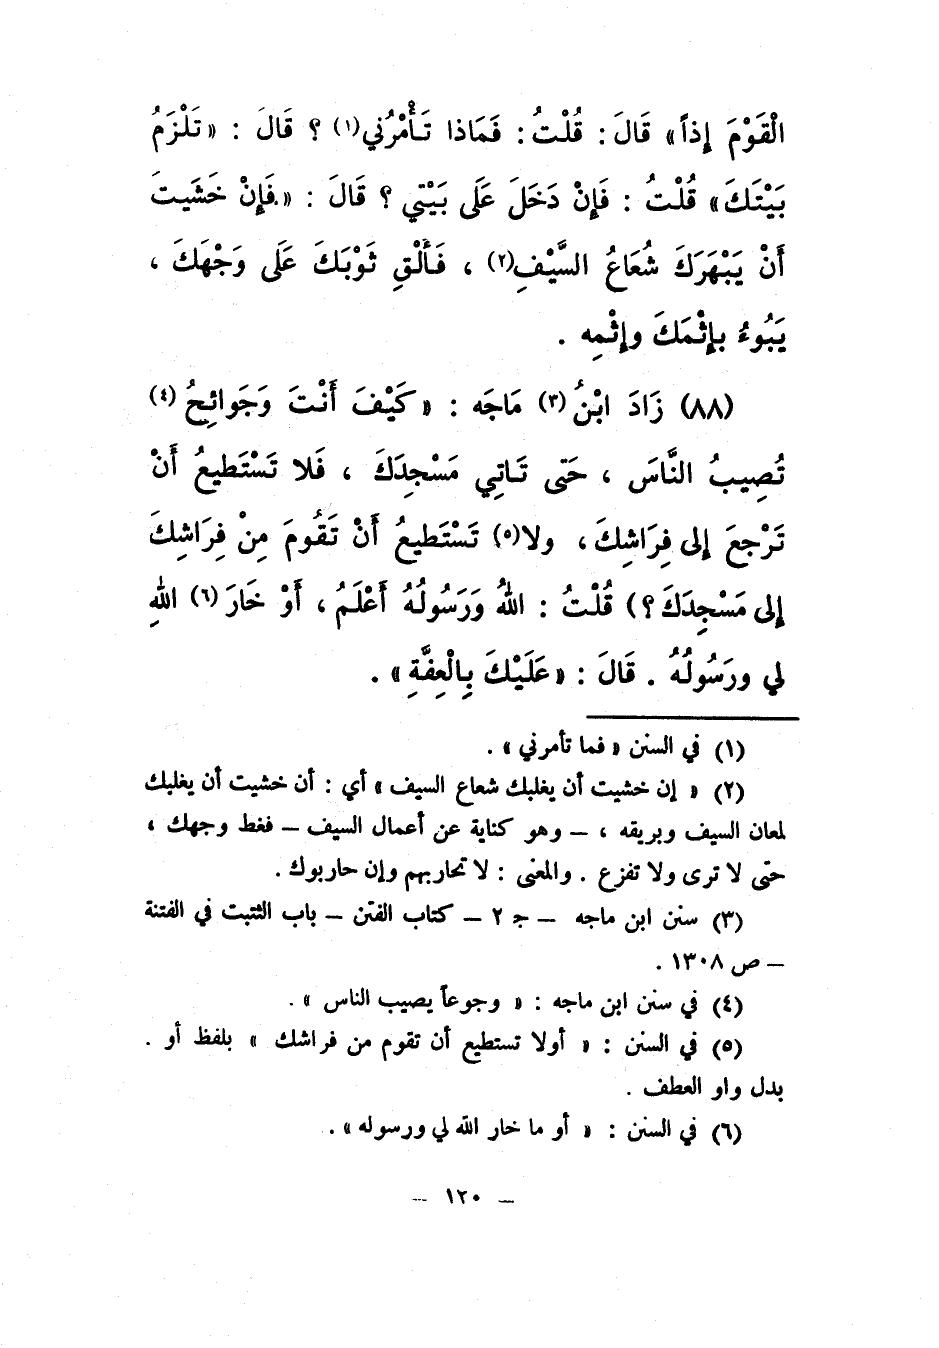 الْقَوْمَ إِذاً» قَالَ : قُلْتُ : فَمَاذا تَأْمُرُني(١) ؟ قَالَ : «تَلْزَمُ
بَيْتَكَ» قُلْتُ : فَإِنْ دَخَلَ عَلَى بَيْتِي ؟ قَالَ : «فَإِنْ خَشَيتَ
أَنْ يَبْهَرَكَ شُعَاعُ السَّيْفِ(٢) ، فَأَلْقِ ثَوْبَكَ عَلَى وَجْهَكَ ،
يَبُوءُ بإِثْمَكَ وإِثْمِه .
(٨٨) زَادَ ابْنُ (٣) مَاجَه : «كَيْفَ أَنْتَ وَجَوائِحُ (٤)
تُصِيبُ النَّاسَ ، حَتى تَاتِي مَسْجِدَكَ ، فَلا تَسْتَطيعُ أَنْ
تَرْجعَ إلى فِرَاشِكَ ، ولا(٥) تَسْتَطيعُ أَنْ تَقُومَ مِنْ فِرَاشِكَ
إلى مَسْجِدَكَ ؟) قُلْتُ : اللهُ وَرَسُولُهُ أَعْلَمُ ، أَوْ خَارَ (٦) اللهُ
لي ورَسُولُهُ . قَالَ : «عَلَيْكَ بِالْعِفَّةِ» .
(١) في السنن « فما تأمرني » .
(٢) « إن خشيت أن يغلبك شعاع السيف » أي : أن خشيت أن يغلبك
لمعان السيف وبريقه ، – وهو كناية عن أعمال السيف – فغط وجهك ،
حتى لا ترى ولا تفزع . والمعنى : لا تحاربهم وإن حاربوك .
(٣) سنن ابن ماجه – ج ٢ – كتاب الفتن – باب التثبت في الفتنة
– ص ١٣٠٨ .
(٤) في سنن ابن ماجه : « وجوعاً يصيب الناس » .
(٥) في السنن : « أولا تستطيع أن تقوم من فراشك » بلفظ أو .
بدل واو العطف .
(٦) في السنن : « أو ما خار الله لي ورسوله » .
– ١٢٠ –